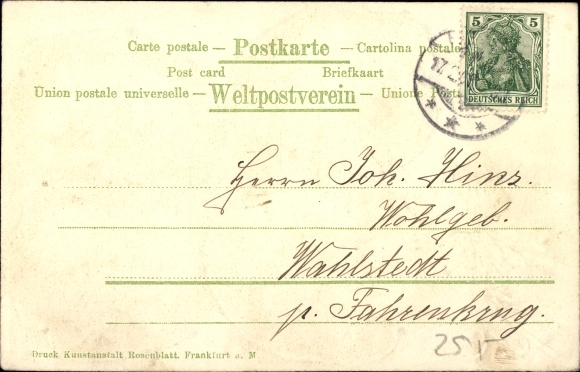 Carte postale — Postkarte — Cartolina postale
Post card Briefkaart
Union postale universelle — Weltpostverein — Unione Posta
5 5
DEUTSCHES REICH
17.2
Herrn Joh. Hinz.
Wohlgeb.
Wahlstedt
p. Fahrenkrug.
25.-
Druck Kunstanstalt Rosenblatt. Frankfurt a. M